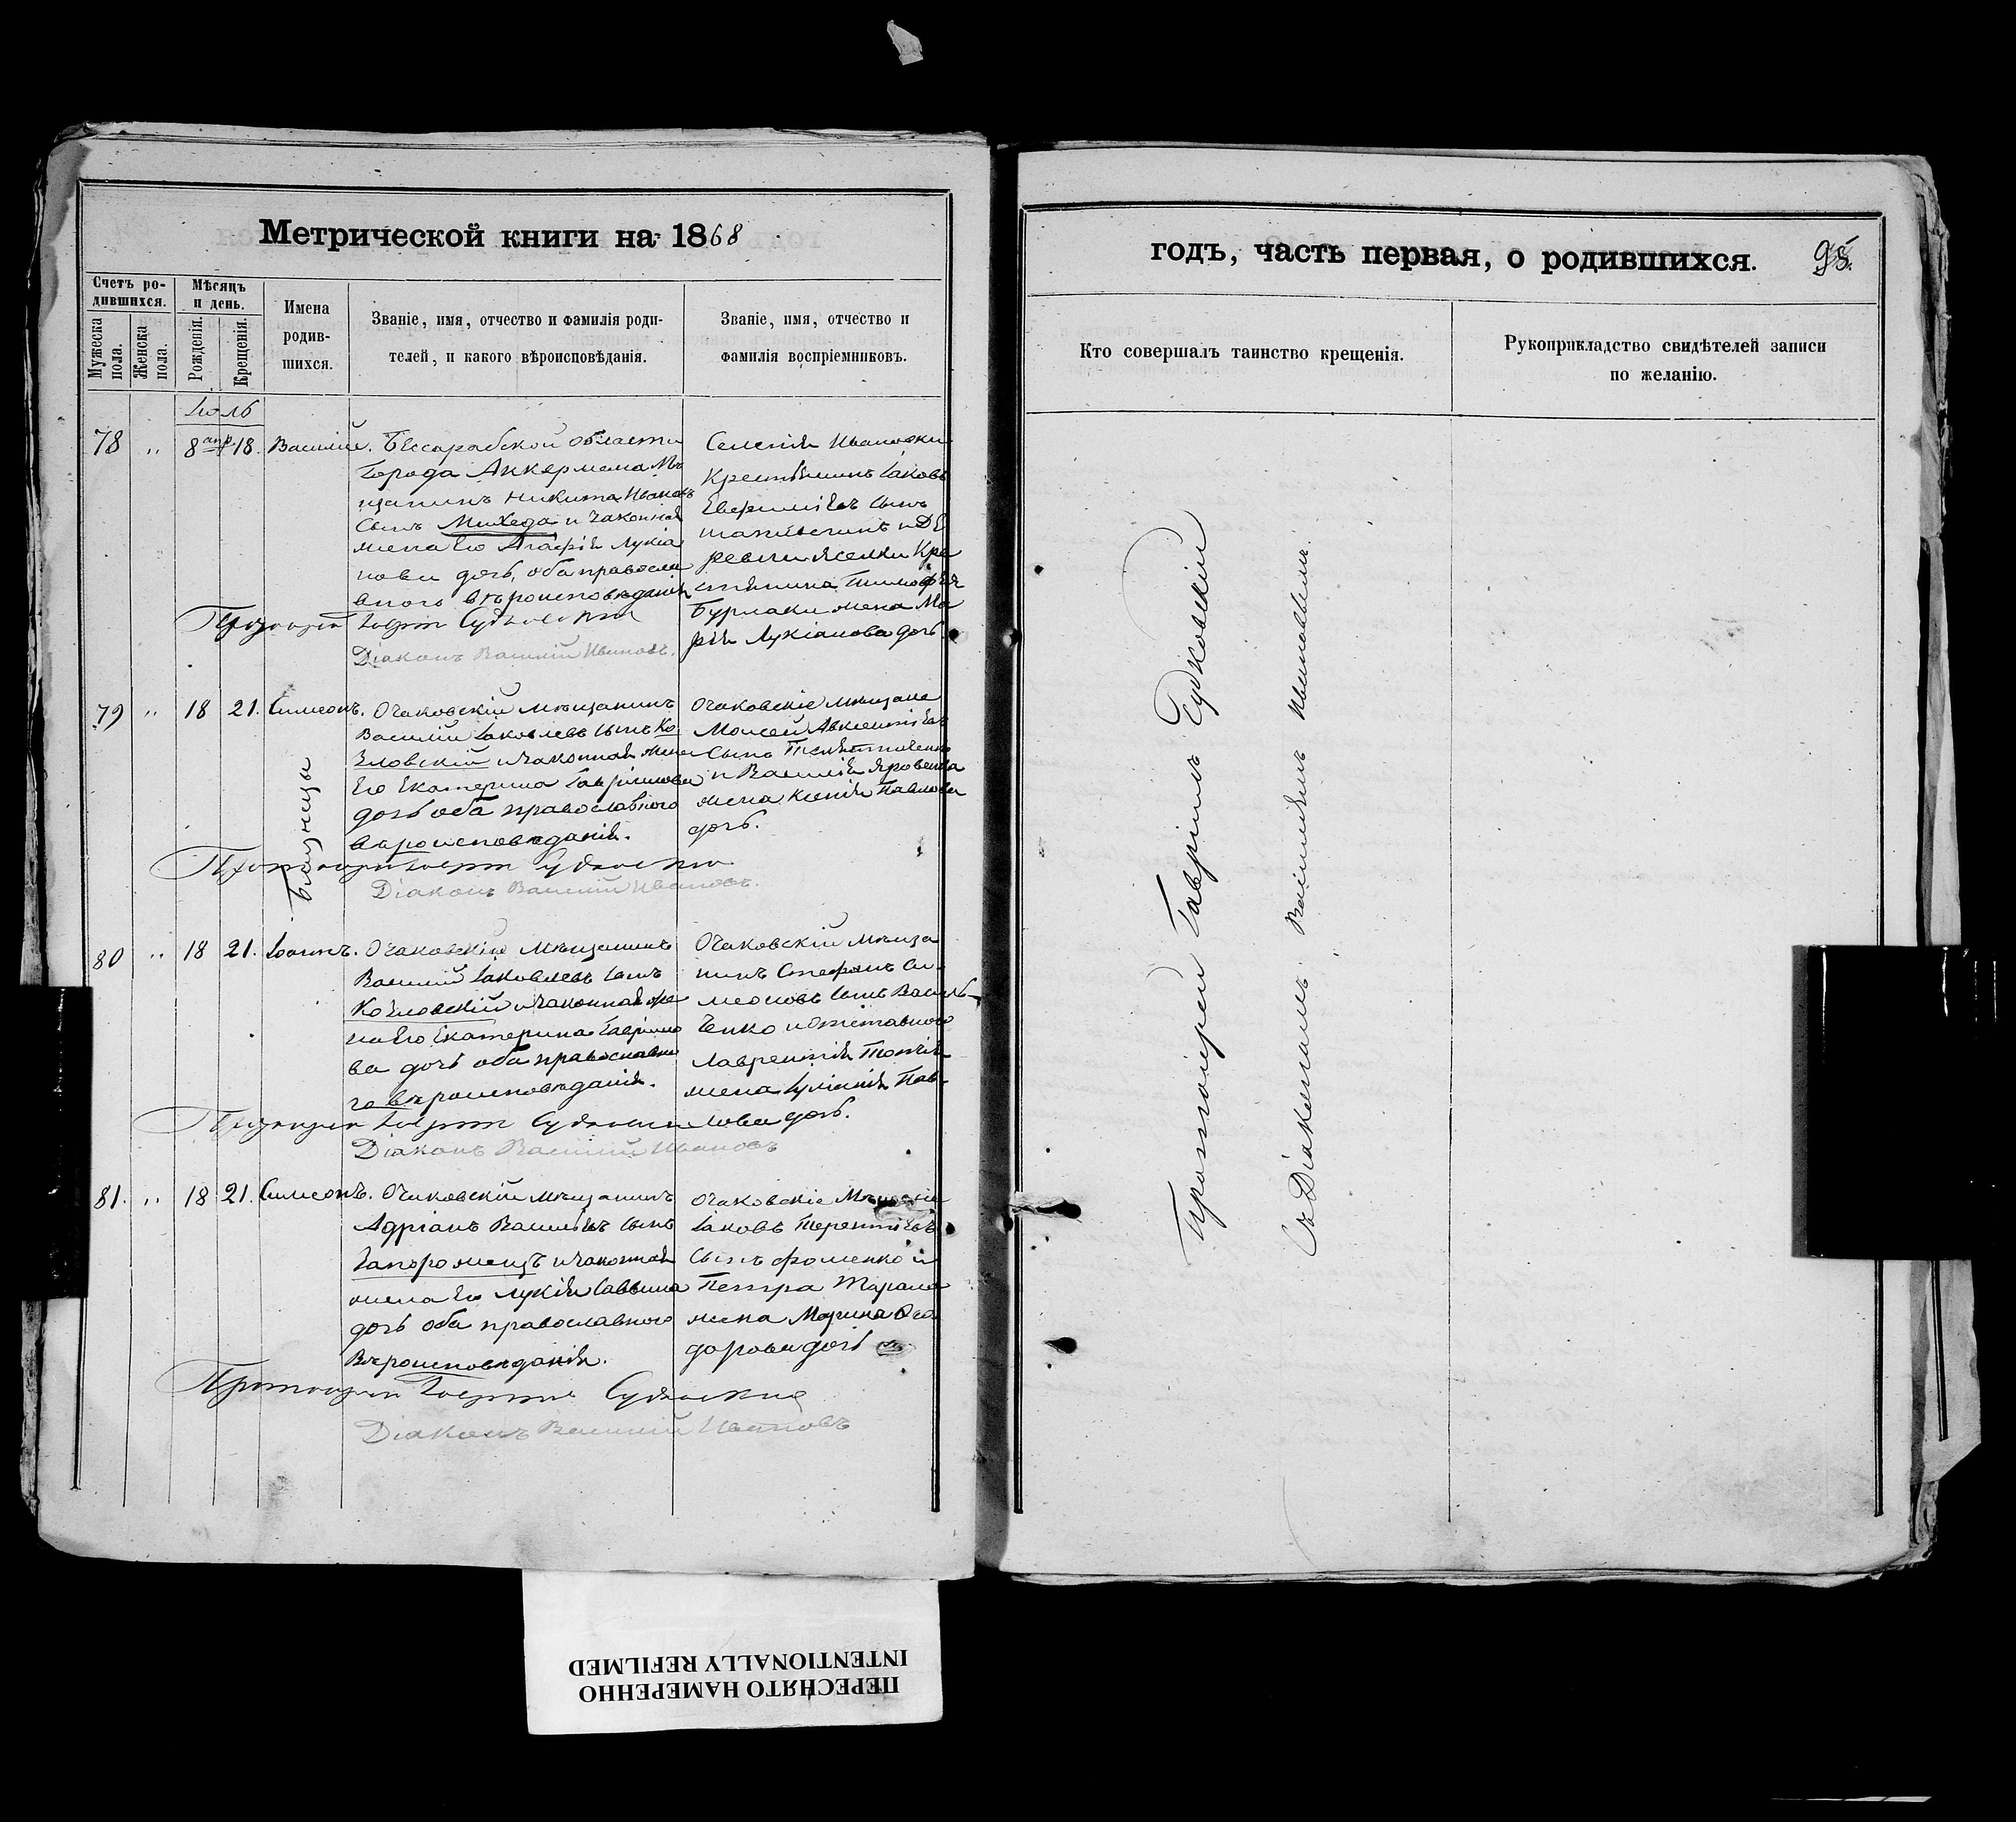 Метрической книги на 1868
Счетъ родившихся.
Мѣсяцъ и день.
Имена родившихся.
Званіе, имя, отчество и фамилія родителей, и какого вѣроисповѣданія.
Званіе, имя, отчество и фамилія воспріемниковъ.
Мужеска пола.
Женска пола.
Рожденія.
Крещенія.
Іюль
78 „ 8 апр. 18. Василій.
Бессарабской области
Города Аккермана Мѣ
щанинъ Никита Ивановъ
сынъ Михеда и законная
жена его Агафія Лукіа
нова дочь, оба православ
наго вѣроисповѣданія
Селенія Ивановки
Крестьянинъ Іаковъ
Евфиміевъ сынъ
и Де
ревни Яселки Кре
стьянина Тимофея
Бурлаки жена Ма
рія Лукіанова дочь
Протоіерей Гавріилъ Судковскій
Діаконъ Василій Ивановъ.
79 „ 18 21. Симеонъ.
Близнецы
Очаковскій мѣщанинъ
Василій Іаковлевъ сынъ Ко
зловскій и законная жена
его Екатерина Гавріилова
дочь оба православного
вѣроисповѣданія.
Очаковскіе мѣщане
Моисей Авксентіевъ
сынъ
и Василія Яровенка
жена Ксенія Павлова
дочь.
Протоіерей Гавріилъ Судковскій
Діаконъ Василій Ивановъ.
80 „ 18 21. Іоаннъ.
Очаковскій мѣщанинъ
Василій Іаковлевъ сынъ
Козловскій и законная же
на его Екатерина Гаврiило
ва дочь оба православна
го вѣроисповѣданія.
Очаковскій мѣща
нинъ Стефанъ Си
меоновъ сынъ Василь
ченко и отставного
Лаврентія
жена Іуліанія Пав
лова дочь.
Протоіерей Гавріилъ Судковскій
Діаконъ Василій Ивановъ
81. „ 18 21. Симеонъ.
Очаковскій мѣщанинъ
Адріанъ Васильевъ сынъ
Запорожецъ и законная
жена его Лукія Саввина
дочь оба православного
вѣроисповѣданія.
Очаковскіе мѣщане
Іаковъ Терентіевъ
сынъ Фоменко и
Петра Тарана
жена Марина Ѳео
дорова дочь
Протоіерей Гавріилъ Судковскій
Діаконъ Василій Ивановъ
годъ, часть первая, о родившихся.
95.
Кто совершалъ таинство крещенія.
Рукоприкладство свидѣтелей записи
по желанію.
Протоіерей Гавріилъ Судковскій
Съ Діакономъ Василіемъ Ивановымъ.
ПЕРЕСНЯТО НАМЕРЕННО
INTENTIONALLY REFILMED